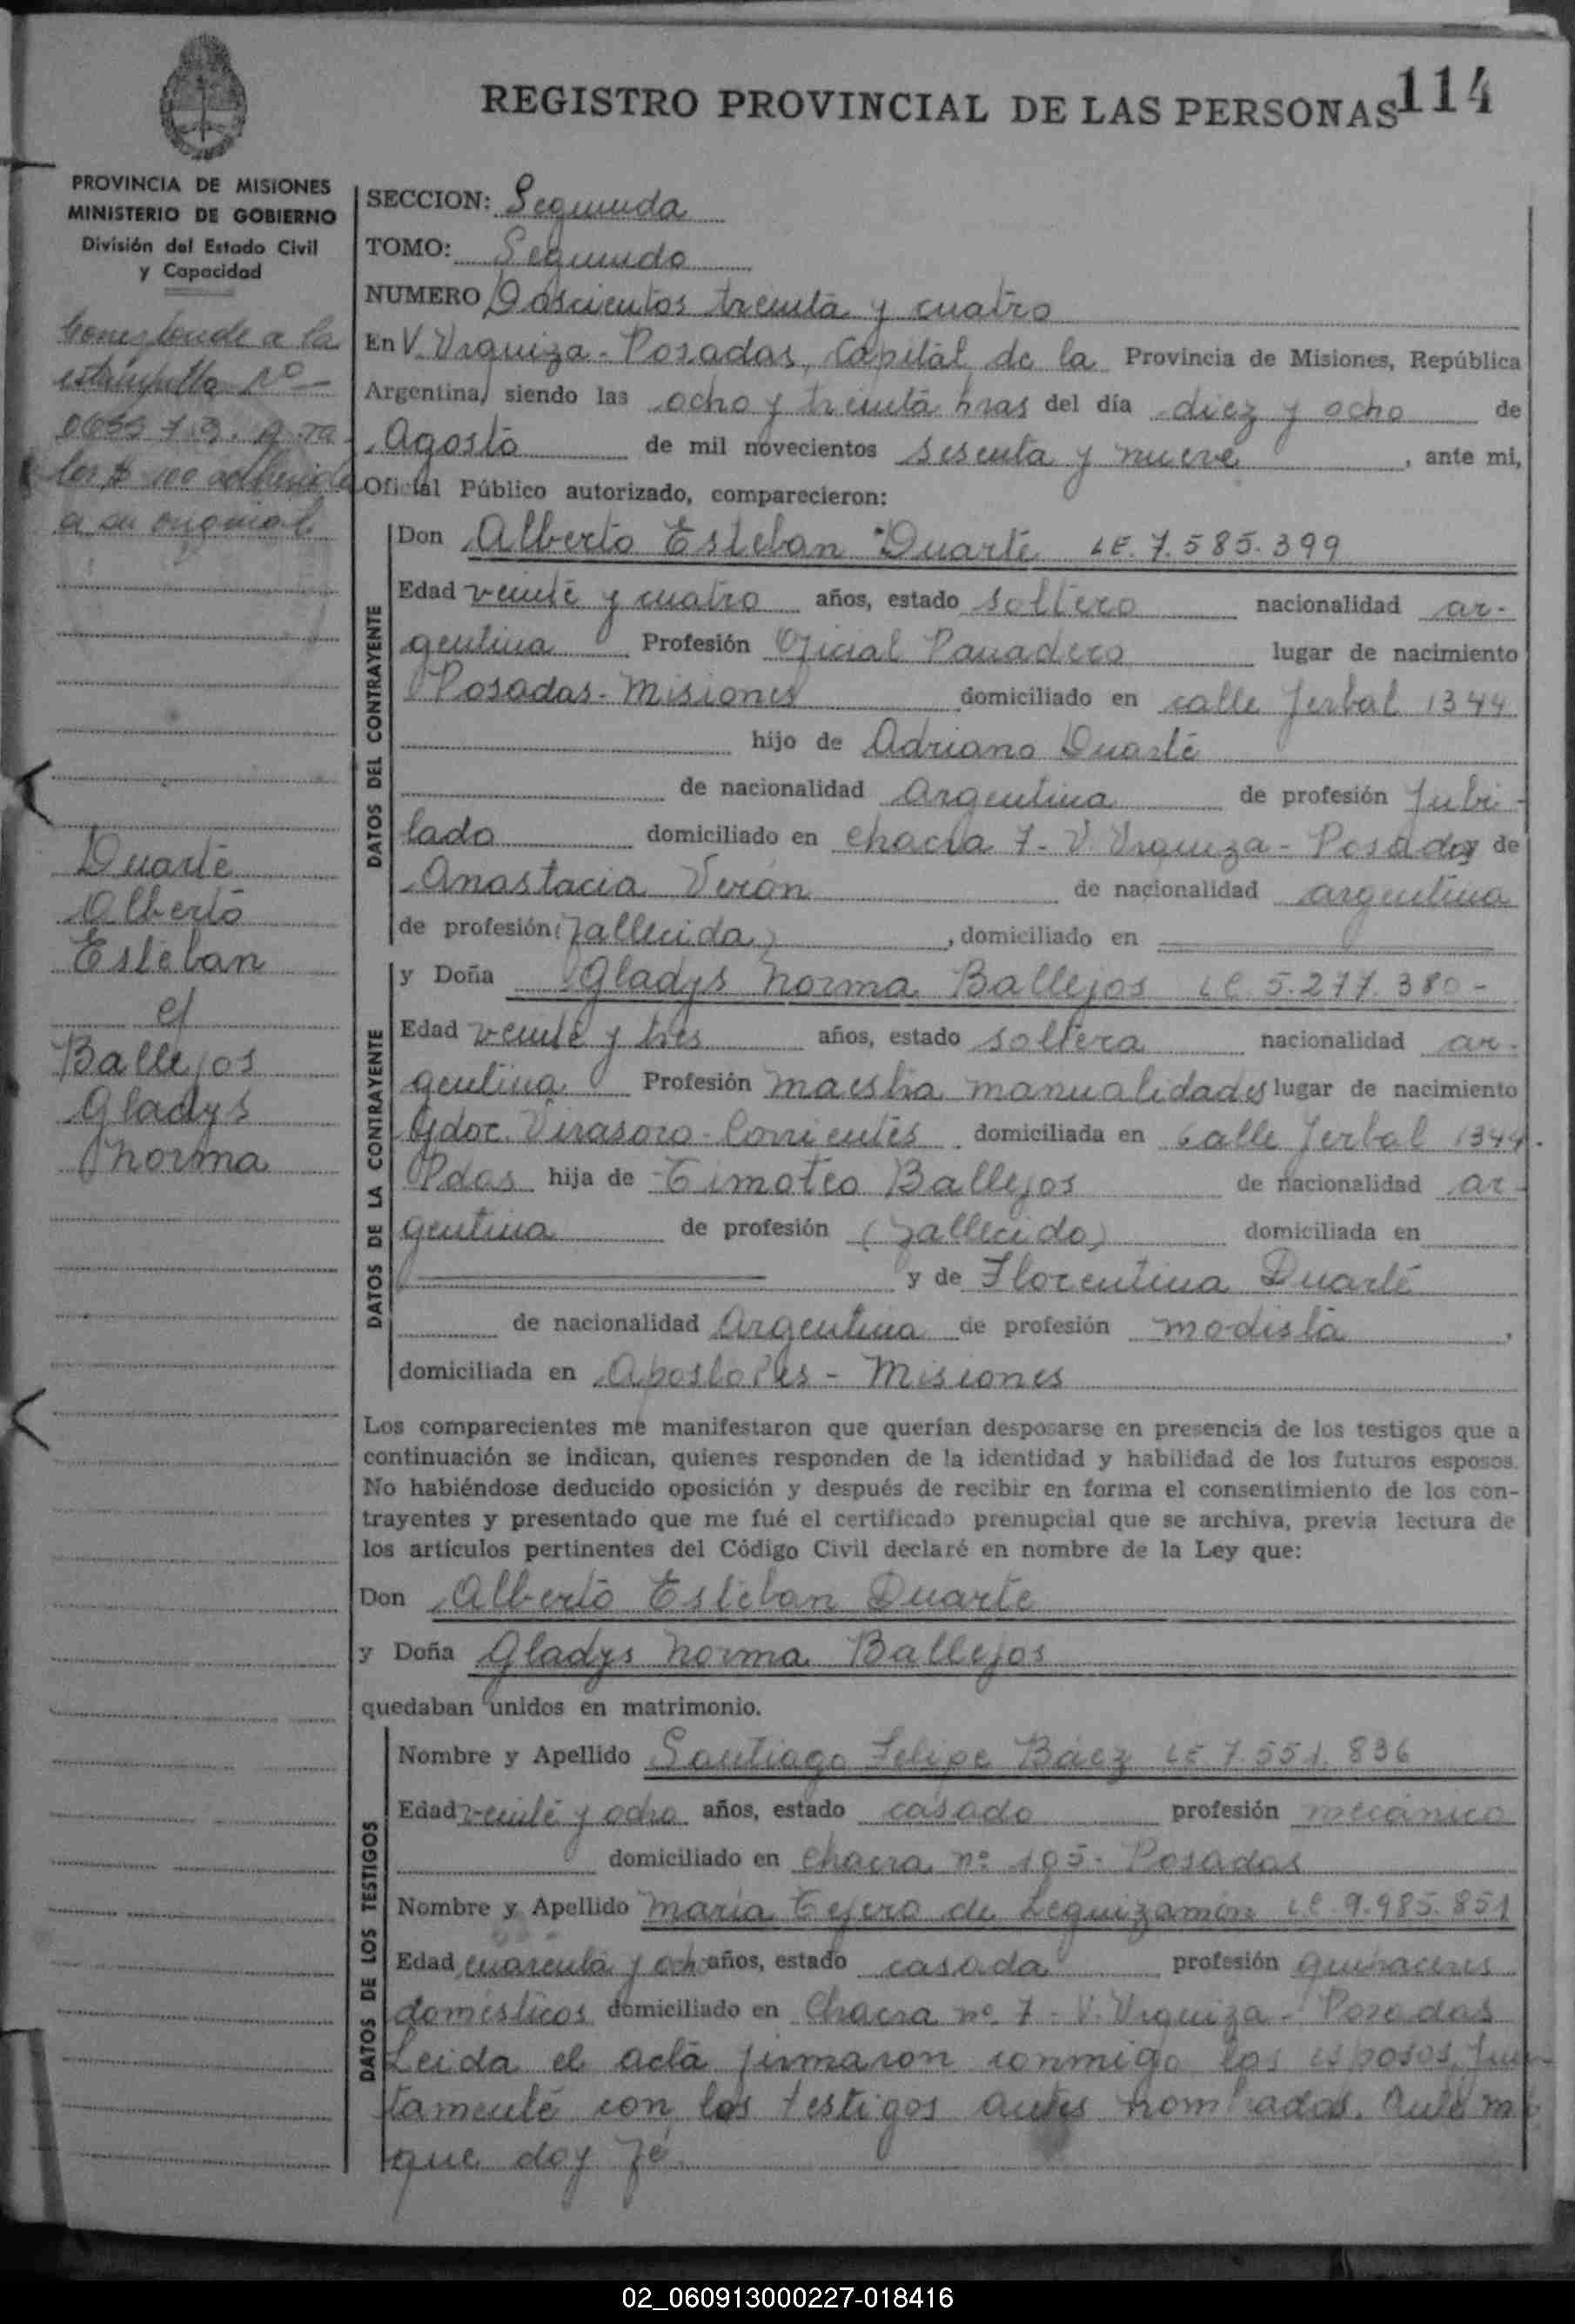 114
REGISTRO PROVINCIAL DE LAS PERSONAS
PROVINCIA DE MISIONES
MINISTERIO DE GOBIERNO
División del Estado Civil
y Capacidad
Corresponde a la
estampilla Nº
lor $ 100 adherida
a su original
Duarte
Alberto
Esteban
c/
Ballejos
Gladys
Norma
SECCION: Segunda
TOMO: Segundo
NUMERO Doscientos treinta y cuatro
En V. Urquiza - Posadas, Capital de la Provincia de Misiones, República
Argentina, siendo las ocho y treinta hras del día diez y ocho de
Agosto de mil novecientos sesenta y nueve, ante mi,
Oficial Público autorizado, comparecieron:
DATOS DEL CONTRAYENTE
Don Alberto Esteban Duarte LE. 7.585.399
Edad veinte y cuatro años, estado soltero nacionalidad ar-
gentina Profesión Oficial Panadero lugar de nacimiento
Posadas - Misiones domiciliado en calle Jerbal 1344
hijo de Adriano Duarte
de nacionalidad Argentina de profesión Jubi-
lado domiciliado en chacra 7 - V. Urquiza - Posadas y de
Anastacia Verón de nacionalidad argentina
de profesión (fallecida), domiciliado en
DATOS DE LA CONTRAYENTE
y Doña Gladys Norma Ballejos LC. 5.277.380 -
Edad veinte y tres años, estado soltera nacionalidad ar-
gentina Profesión maestra manualidades lugar de nacimiento
Gdor. Virasoro - Corrientes domiciliada en Calle Jerbal 1344.
Pdas hija de Timoteo Ballejos de nacionalidad ar-
gentina de profesión (fallecido) domiciliada en
y de Florentina Duarte
de nacionalidad Argentina de profesión modista,
domiciliada en Apostoles - Misiones
Los comparecientes me manifestaron que querían desposarse en presencia de los testigos que a
continuación se indican, quienes responden de la identidad y habilidad de los futuros esposos.
No habiéndose deducido oposición y después de recibir en forma el consentimiento de los con-
trayentes y presentado que me fué el certificado prenupcial que se archiva, previa lectura de
los artículos pertinentes del Código Civil declaré en nombre de la Ley que:
Don Alberto Esteban Duarte
y Doña Gladys Norma Ballejos
quedaban unidos en matrimonio.
DATOS DE LOS TESTIGOS
Nombre y Apellido Santiago Felipe Báez LE. 7.551.836
Edad veinte y ocho años, estado casado profesión mecánico
domiciliado en Chacra nº 105 - Posadas
Nombre y Apellido María Tejero de Leguizamón LC. 9.985.851
Edad cuarenta y och años, estado casada profesión quehaceres
domésticos domiciliado en Chacra nº 7 - V. Urquiza - Posadas
Leida el acta firmaron conmigo los esposos, jun-
tamente con los testigos antes nombrados. Ante mi
que doy fé.
02_060913000227-018416